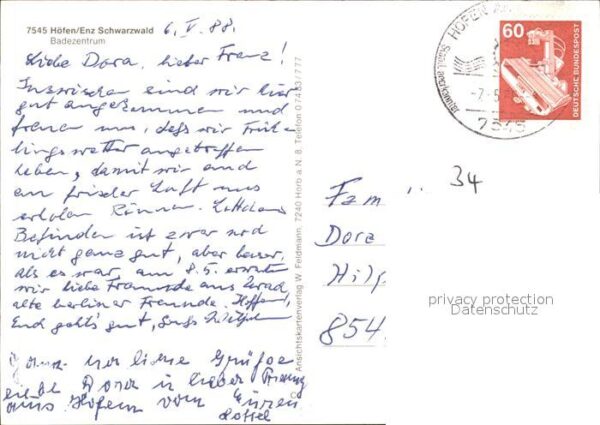 7545 Höfen/Enz Schwarzwald
Badezentrum
6. V. 88.
Liebe Dora, lieber Franz!
Inzwischen sind wir hier
gut angekommen und
freuen uns, daß wir Früh-
lingswetter angetroffen
haben, damit wir uns
an frischer Luft uns
erholen können.
Befinden ist zwar noch
nicht ganz gut, aber besser,
als es war, am 8.5. erwarten
wir liebe Freunde aus
alte berliner Freunde. Hoffen,
Euch geht's gut,
Ganz herzliche Grüße
liebe Dora u lieber Franz
aus Höfen von Euren
Lottel
Ansichtskartenverlag W. Feldmann, 7240 Horb a. N. 8, Telefon 07483/777
HÖFEN AN
7545
60
DEUTSCHE BUNDESPOST
34
Fam
Dora
Hilg
854
privacy protection
Datenschutz